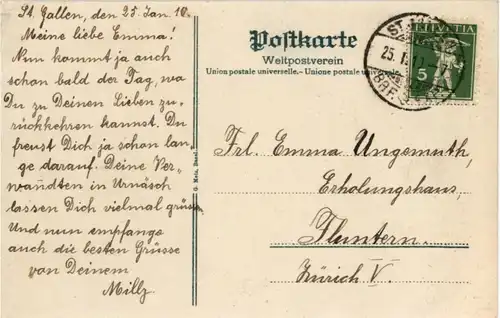 St. Gallen, den 25. Jan. 10.
Meine liebe Emma!
Nun kommt ja auch
schon bald der Tag, wo
Du zu Deinen Lieben zu-
rückkehren kannst. Du
freust Dich ja schon lan-
ge darauf. Deine Ver-
wandten in Urnäsch
lassen Dich vielmal grüssen
Und nun empfange
auch die besten Grüsse
von Deinem
Postkarte
Weltpostverein
Union postale universelle. - Unione postale universale
HELVETIA
5
25. I.
Frl. Emma Ungemuth,
Erholungshaus,
Fluntern.
Zürich V.